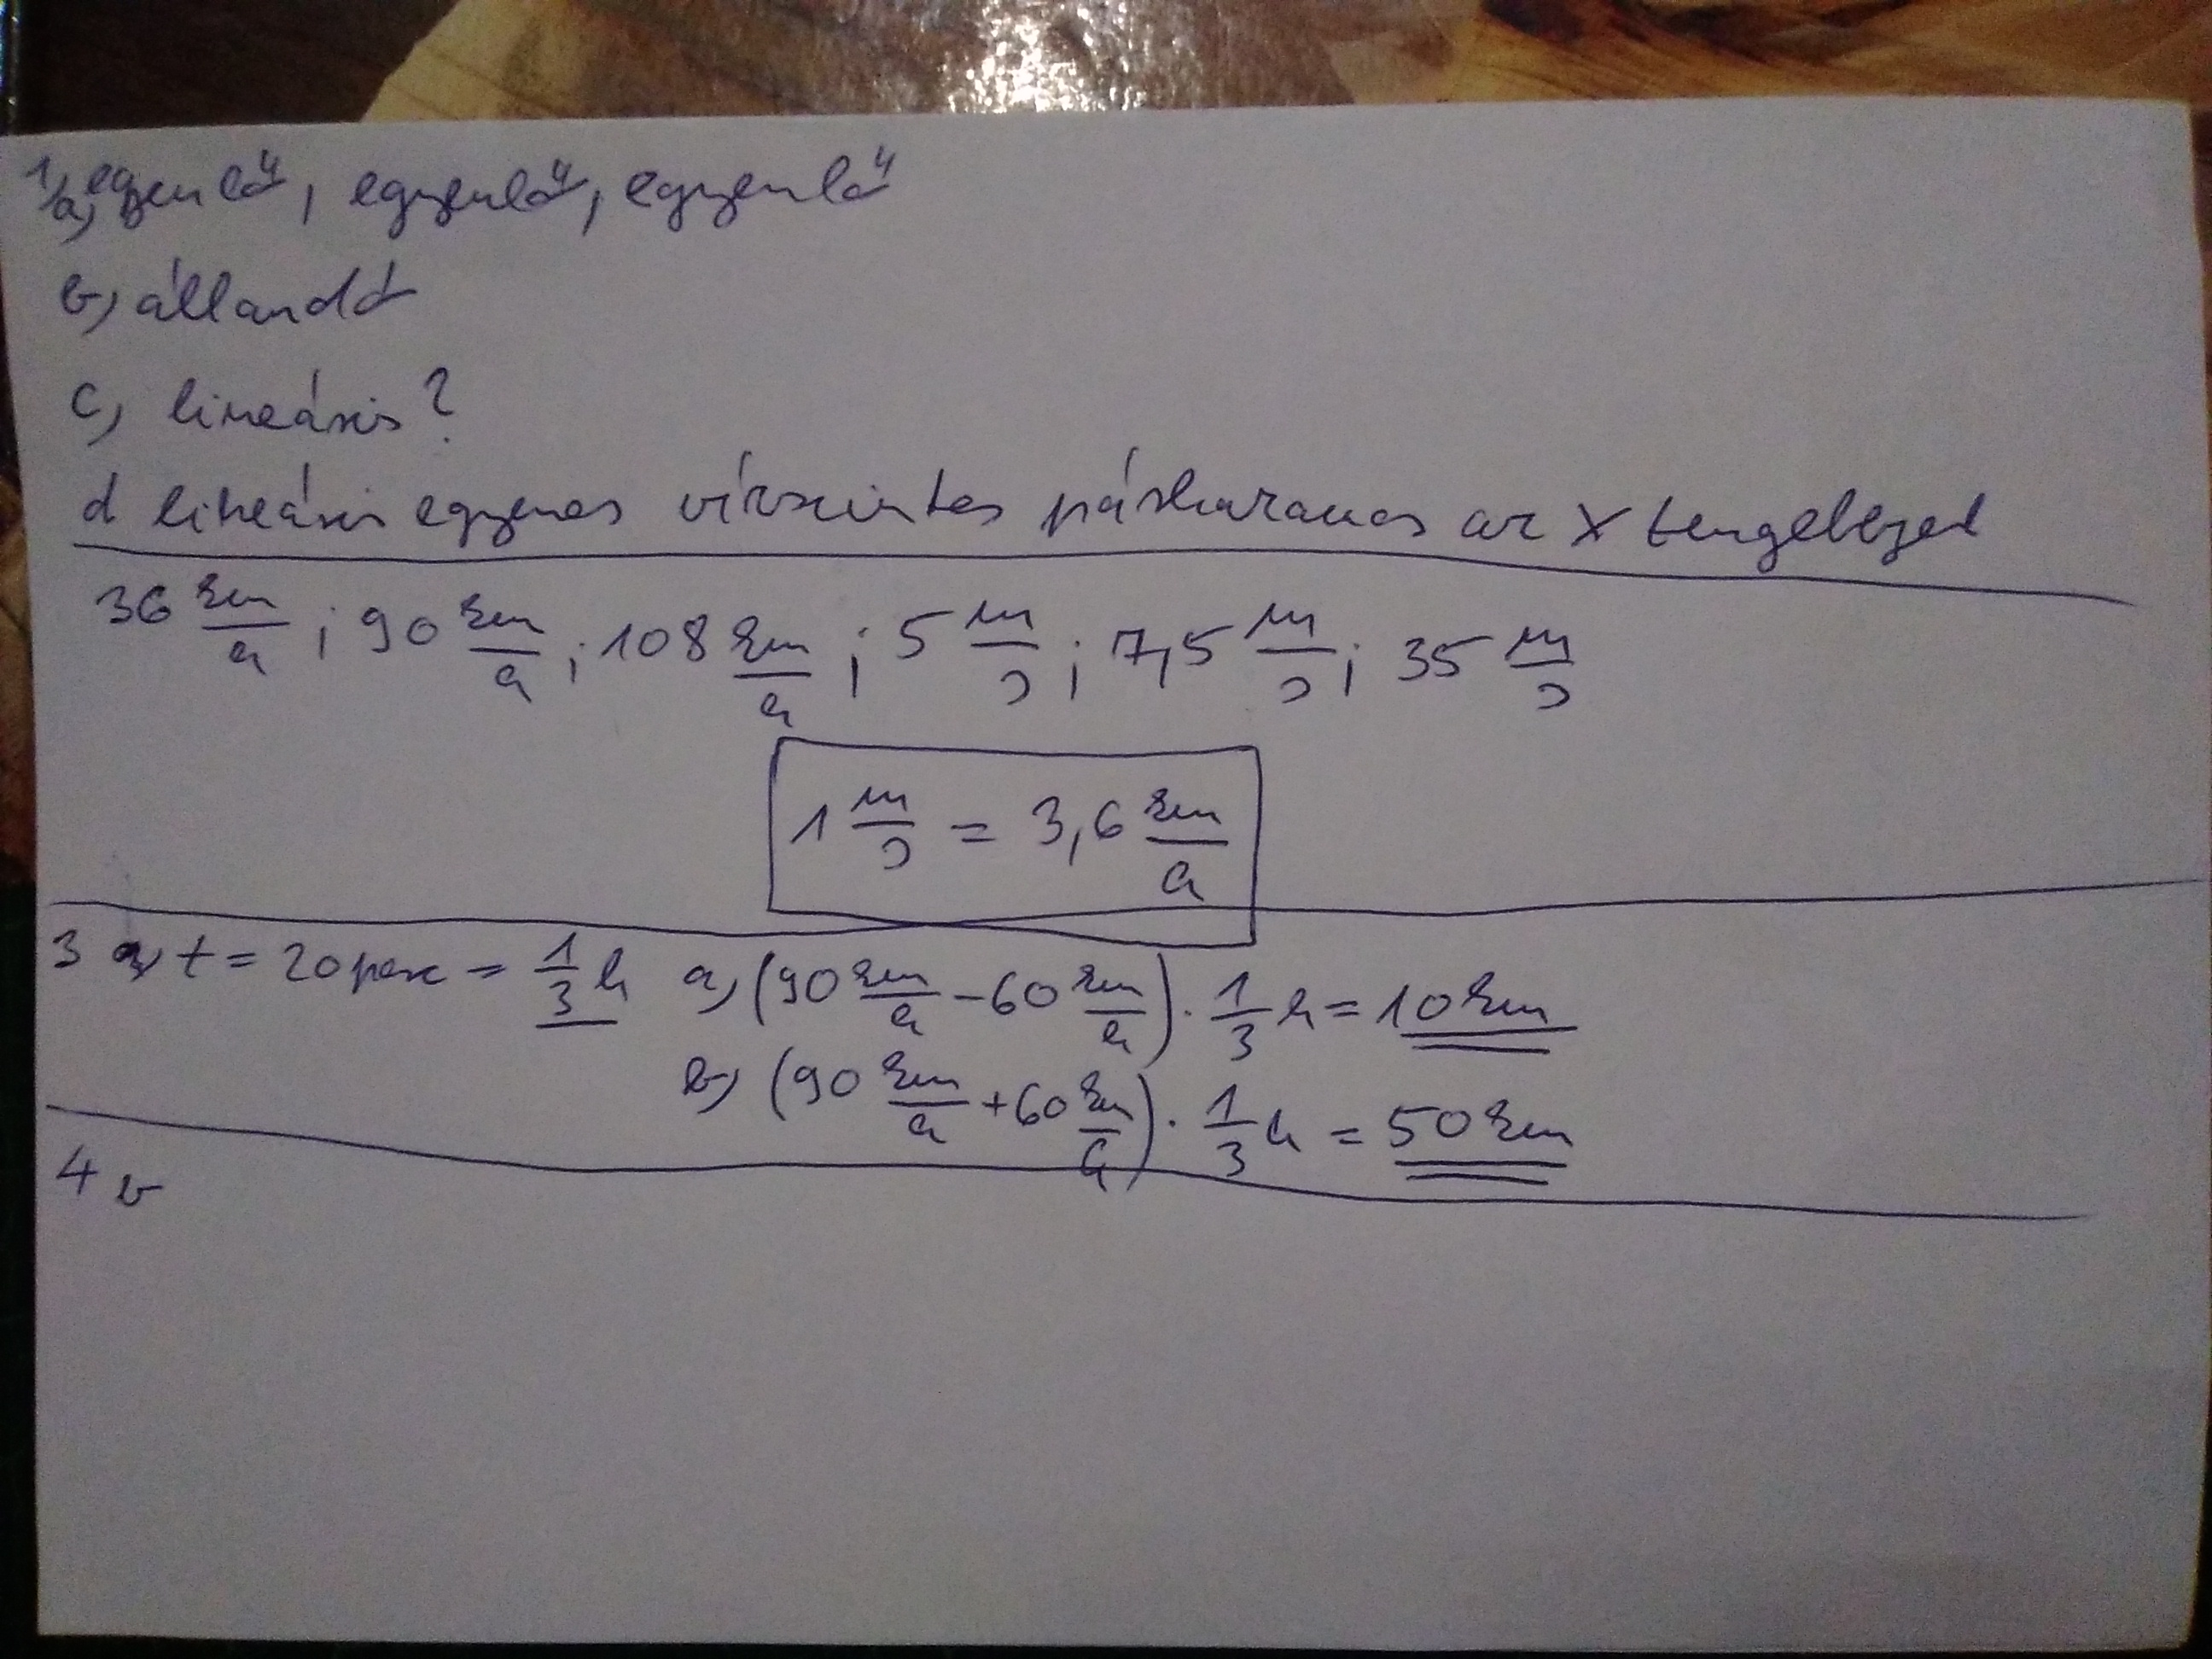 1, a, egyenlő, egyenlő, egyenlő
b, állandó
c, lineáris?
d lineáris egyenes vízszintes párhuzamos az x tengellyel
36 km/h ; 90 km/h ; 108 km/h ; 5 m/s ; 7,5 m/s ; 35 m/s
1 m/s = 3,6 km/h
3 a, t = 20 perc = 1/3 h a, (90 km/h - 60 km/h) · 1/3 h = 10 km
b, (90 km/h + 60 km/h) · 1/3 h = 50 km
4 b